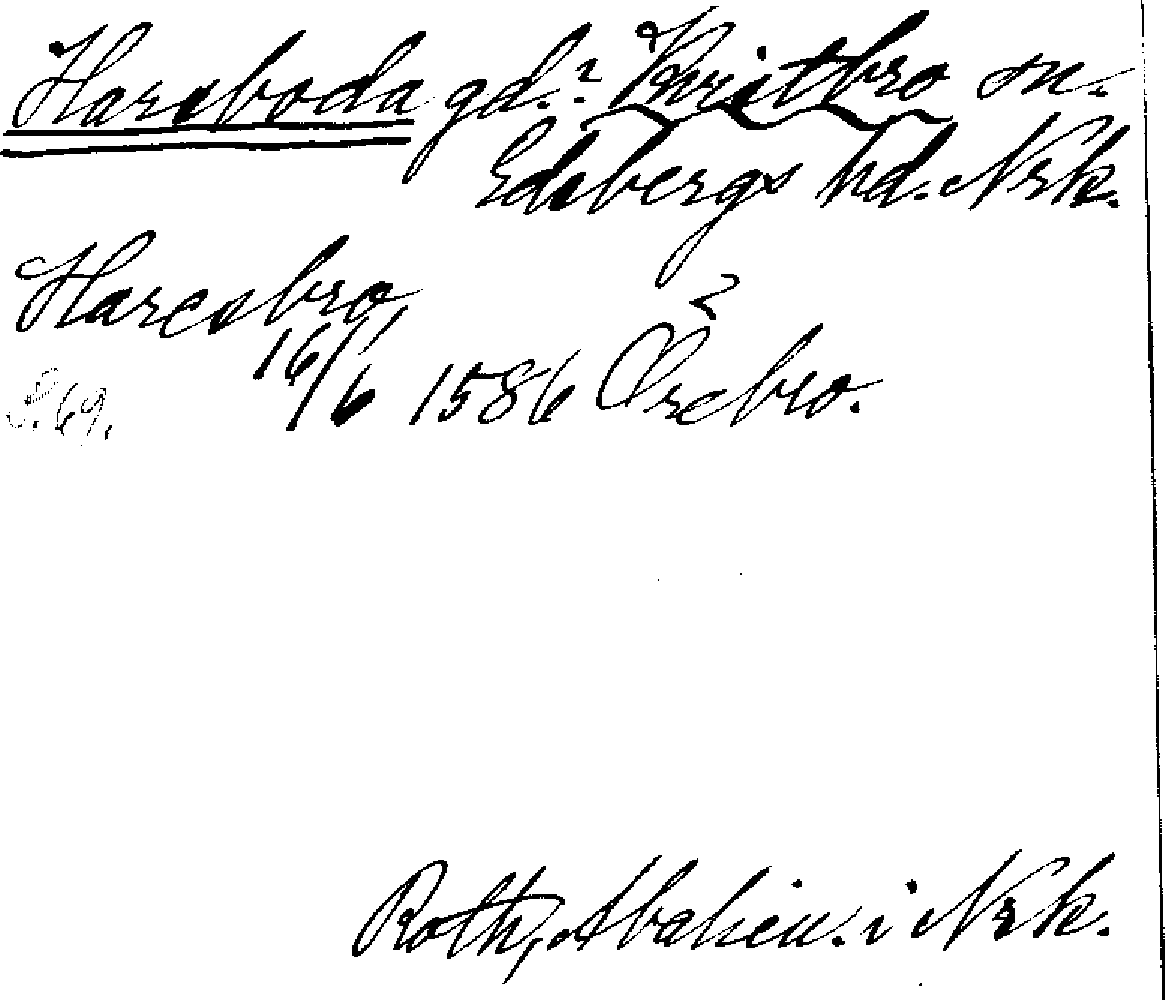 Harsboda gd.? Knistbro sn.
Edsbergs hd. Nrk.
Haresbro,
16/6 1586 Örebro.
S. 69.
Roth, Abalien. i Nrk.